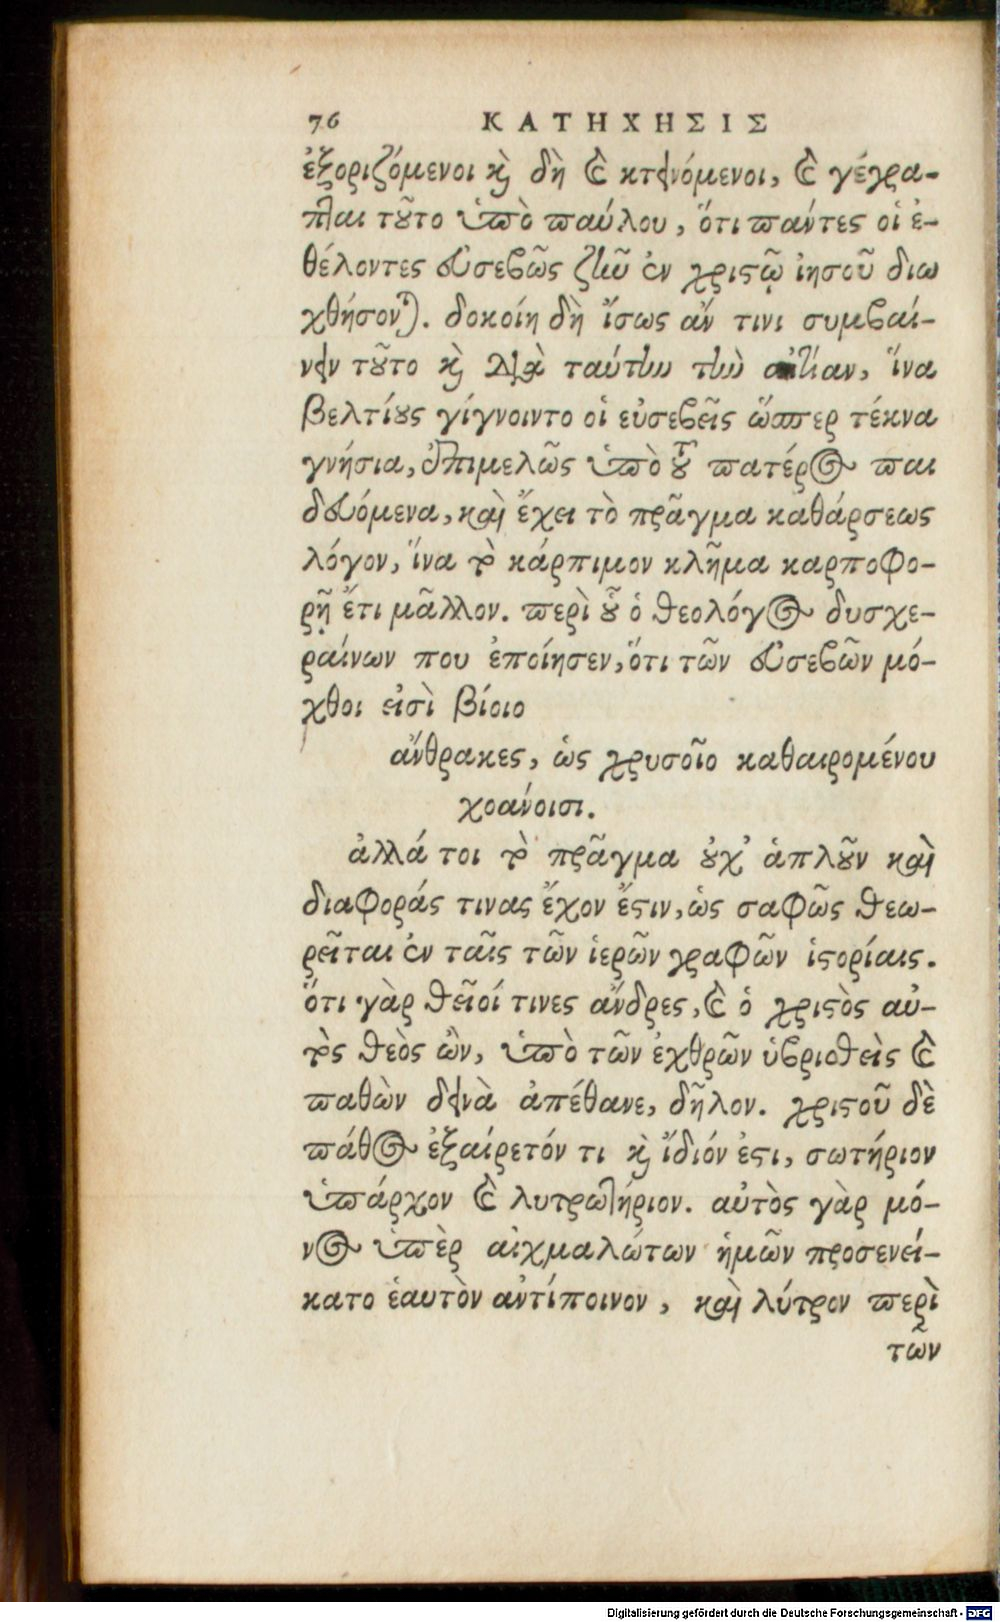 76 ΚΑΤΗΧΗΣΙΣ
ἐξοριζόμενοι καὶ δὴ καὶ κτεινόμενοι, καὶ γέγρα-
πται τοῦτο ὑπὸ παύλου, ὅτι πάντες οἱ ἐ-
θέλοντες εὐσεβῶς ζῆν ἐν χριστῷ ἰησοῦ διω
χθήσονται. δοκοίη δὴ ἴσως ἄν τινι συμβαί-
νειν τοῦτο καὶ διὰ ταύτην τὴν αἰτίαν, ἵνα
βελτίους γίγνοιντο οἱ εὐσεβεῖς ὥσπερ τέκνα
γνήσια, ἐπιμελῶς ὑπὸ τοῦ πατέρος παι
δευόμενα, καὶ ἔχει τὸ πρᾶγμα καθάρσεως
λόγον, ἵνα τὸ κάρπιμον κλῆμα καρποφο-
ρῇ ἔτι μᾶλλον. περὶ οὗ ὁ θεολόγος δυσχε-
ραίνων που ἐποίησεν, ὅτι τῶν εὐσεβῶν μό-
χθοι εἰσὶ βίοιο
ἄνθρακες, ὡς χρυσοῖο καθαιρομένου
χοάνοισι.
ἀλλά τοι τὸ πρᾶγμα οὐχ' ἁπλοῦν καὶ
διαφοράς τινας ἔχον ἔστιν, ὡς σαφῶς θεω-
ρεῖται ἐν ταῖς τῶν ἱερῶν γραφῶν ἱστορίαις.
ὅτι γὰρ θεῖοί τινες ἄνδρες, καὶ ὁ χριστὸς αὐ-
τὸς θεὸς ὢν, ὑπὸ τῶν ἐχθρῶν ὑβρισθεὶς καὶ
παθὼν δεινὰ ἀπέθανε, δῆλον. χριστοῦ δὲ
πάθος ἐξαίρετόν τι καὶ ἴδιόν ἐστι, σωτήριον
ὑπάρχον καὶ λυτρωτήριον. αὐτὸς γὰρ μό-
νος ὑπὲρ αἰχμαλώτων ἡμῶν προσενεί-
κατο ἑαυτὸν ἀντίποινον, καὶ λύτρον περὶ
τῶν
Digitalisierung gefördert durch die Deutsche Forschungsgemeinschaft - DFG